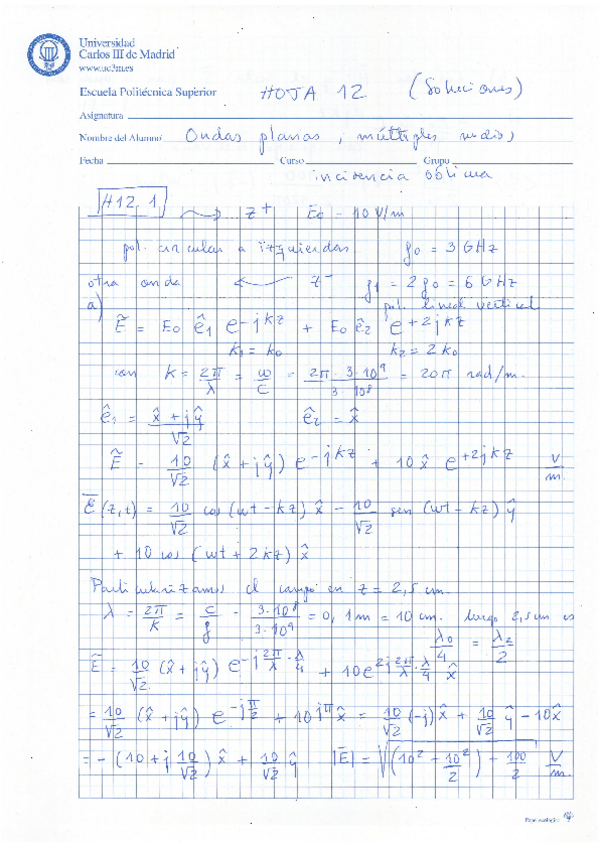 Universidad
Carlos III de Madrid
www.uc3m.es
Escuela Politécnica Superior
HOJA 12 (Soluciones)
Asignatura
Nombre del Alumno Ondas planas, múltiples medios,
Fecha Curso Grupo
incidencia oblicua
H12.1 z+ E0 = 10 V/m
pol. circular a izquierdas f0 = 3 GHz
otra onda z- f1 = 2 f0 = 6 GHz
a) pol. lineal vertical
Ẽ = E0 ê1 e^{-jkz} + E0 ê2 e^{+2jkz}
k1 = k0 k2 = 2 k0
con k = 2π/λ = ω/c = 2π · 3·10^9 / 3·10^8 = 20π rad/m.
ê1 = (x̂ + jŷ)/√2 ê2 = x̂
Ẽ = 10/√2 (x̂ + jŷ) e^{-jkz} + 10 x̂ e^{+2jkz} V/m.
Ē(z,t) = 10/√2 cos(ωt - kz) x̂ - 10/√2 sen(ωt - kz) ŷ
+ 10 cos(ωt + 2kz) x̂
Particularizamos el campo en z = 2,5 cm.
λ = 2π/k = c/f = 3·10^8 / 3·10^9 = 0,1m = 10 cm. luego 2,5cm es
λ0/4 = λ2/2
Ẽ = 10/√2 (x̂ + jŷ) e^{-j 2π/λ · λ/4} + 10 e^{2j 2π/λ · λ/4} x̂
= 10/√2 (x̂ + jŷ) e^{-j π/2} + 10 jπ x̂ = 10/√2 (-j) x̂ + 10/√2 ŷ - 10x̂
= -(10 + j 10/√2) x̂ + 10/√2 ŷ |E| = √((10² - 10²/2) - 100/2) V/m.